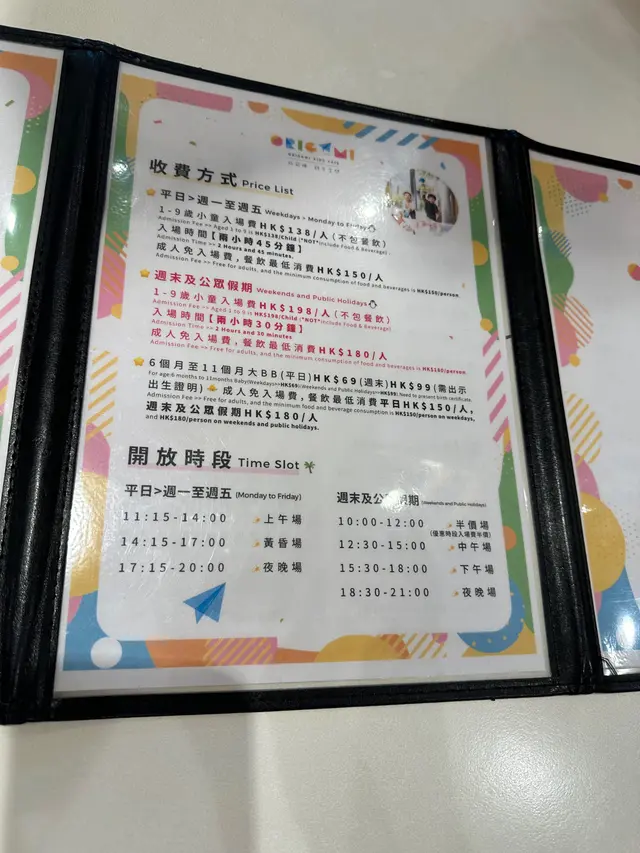 ORIGAMI
ORIGAMI KIDS CAFE
收費方式 Price List
平日>週一至週五 Weekdays > Monday to Friday
1-9歲小童入場費HK$138/人(不包餐飲)
Admission Fee >> Aged 1 to 9 is HK$138/Child (*NOT*Include Food & Beverage).
入場時間【兩小時45分鐘】
Admission Time >> 2 Hours and 45 minutes.
成人免入場費,餐飲最低消費HK$150/人
Admission Fee >> Free for adults, and the minimum consumption of food and beverages is HK$150/person
週末及公眾假期 Weekends and Public Holidays
1-9歲小童入場費HK$198/人(不包餐飲)
Admission Fee >> Aged 1 to 9 is HK$198/Child (*NOT*Include Food & Beverage)
入場時間【兩小時30分鐘】
Admission Time >> 2 Hours and 30 minutes
成人免入場費,餐飲最低消費HK$180/人
Admission Fee >> Free for adults, and the minimum consumption of food and beverages is HK$180/person
6個月至11個月大BB(平日)HK$69(週末)HK$99(需出示
For age 6 months to 11months Baby(Weekdays)>>HK$69(Weekends and Public Holidays)>>HK$99( Need to present birth certificate.
出生證明) 成人免入場費,餐飲最低消費平日HK$150/人,
Admission Fee >> Free for adults, and the minimum food and beverage consumption is HK$150/person on weekdays,
週末及公眾假期HK$180/人
and HK$180/person on weekends and public holidays.
開放時段 Time Slot
平日>週一至週五 (Monday to Friday)
11:15-14:00 上午場
14:15-17:00 黃昏場
17:15-20:00 夜晚場
週末及公眾假期 (Weekends and Public Holidays)
10:00-12:00 半價場
(優惠時段入場費半價)
12:30-15:00 中午場
15:30-18:00 下午場
18:30-21:00 夜晚場